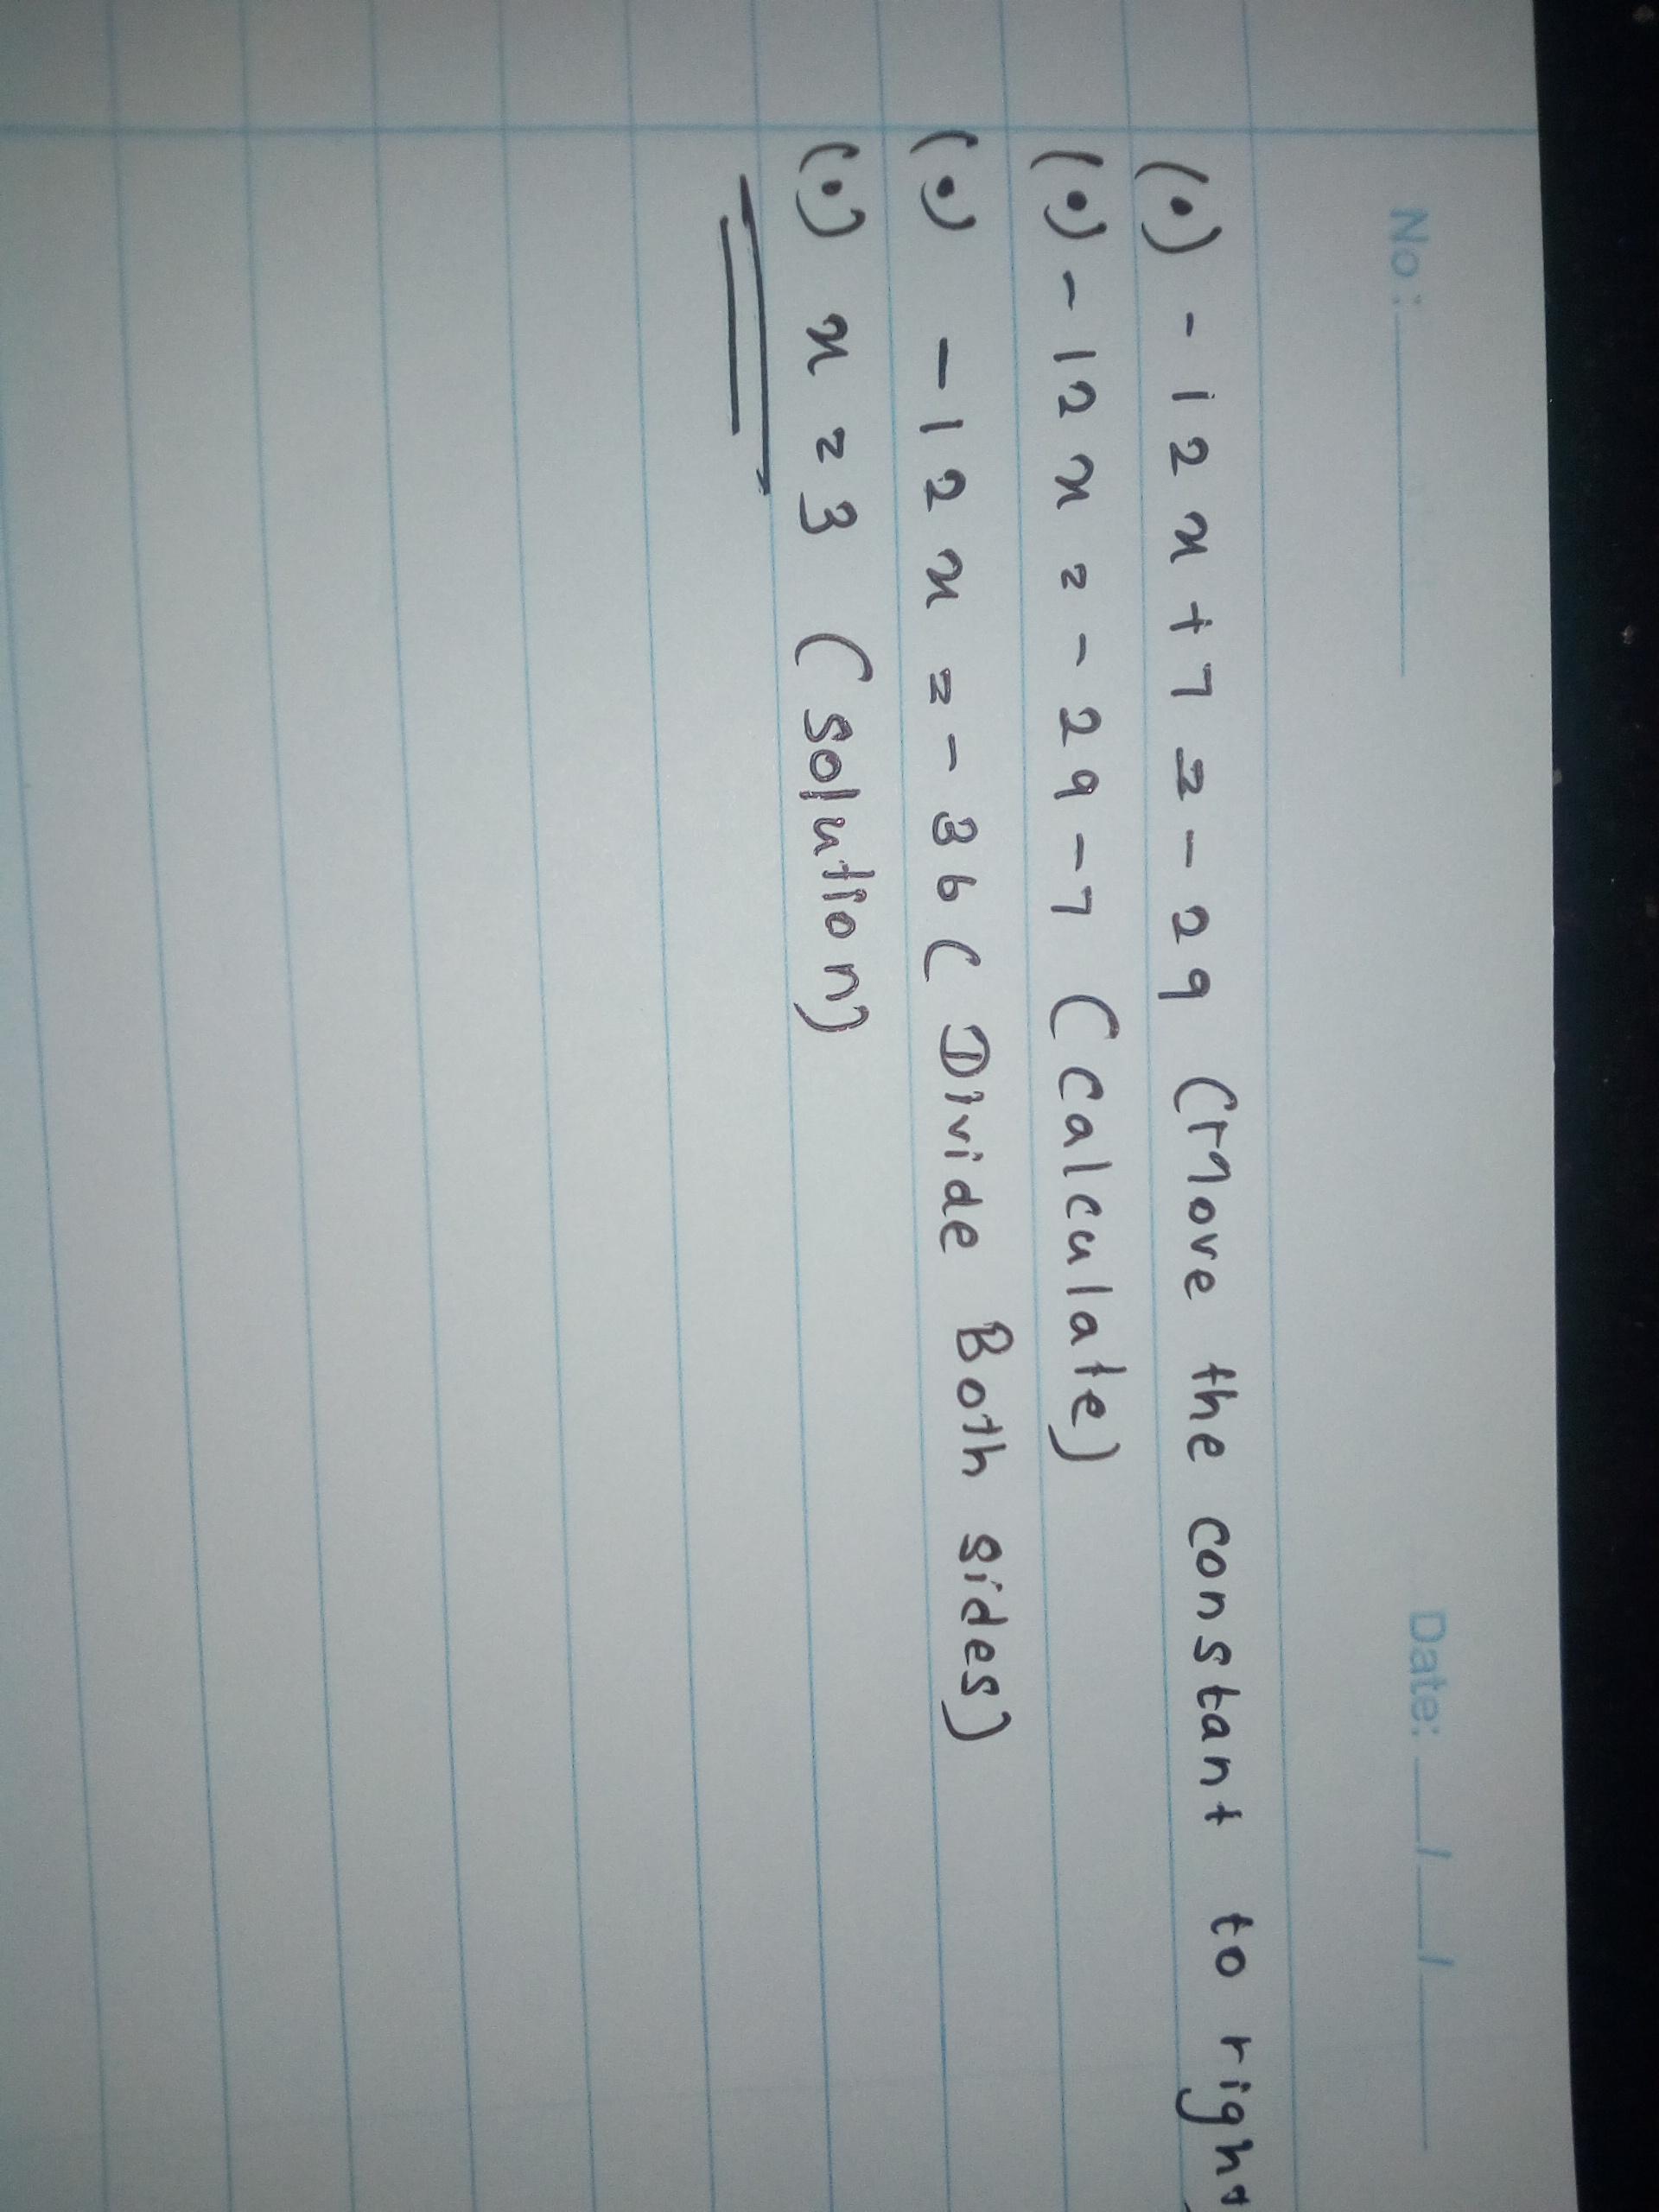 No: Date: / /
(•) -12x+7=-29 (Move the constant to right
(•) -12x=-29-7 (Calculate)
(•) -12x=-36 (Divide Both sides)
(•) x=3 (solution)